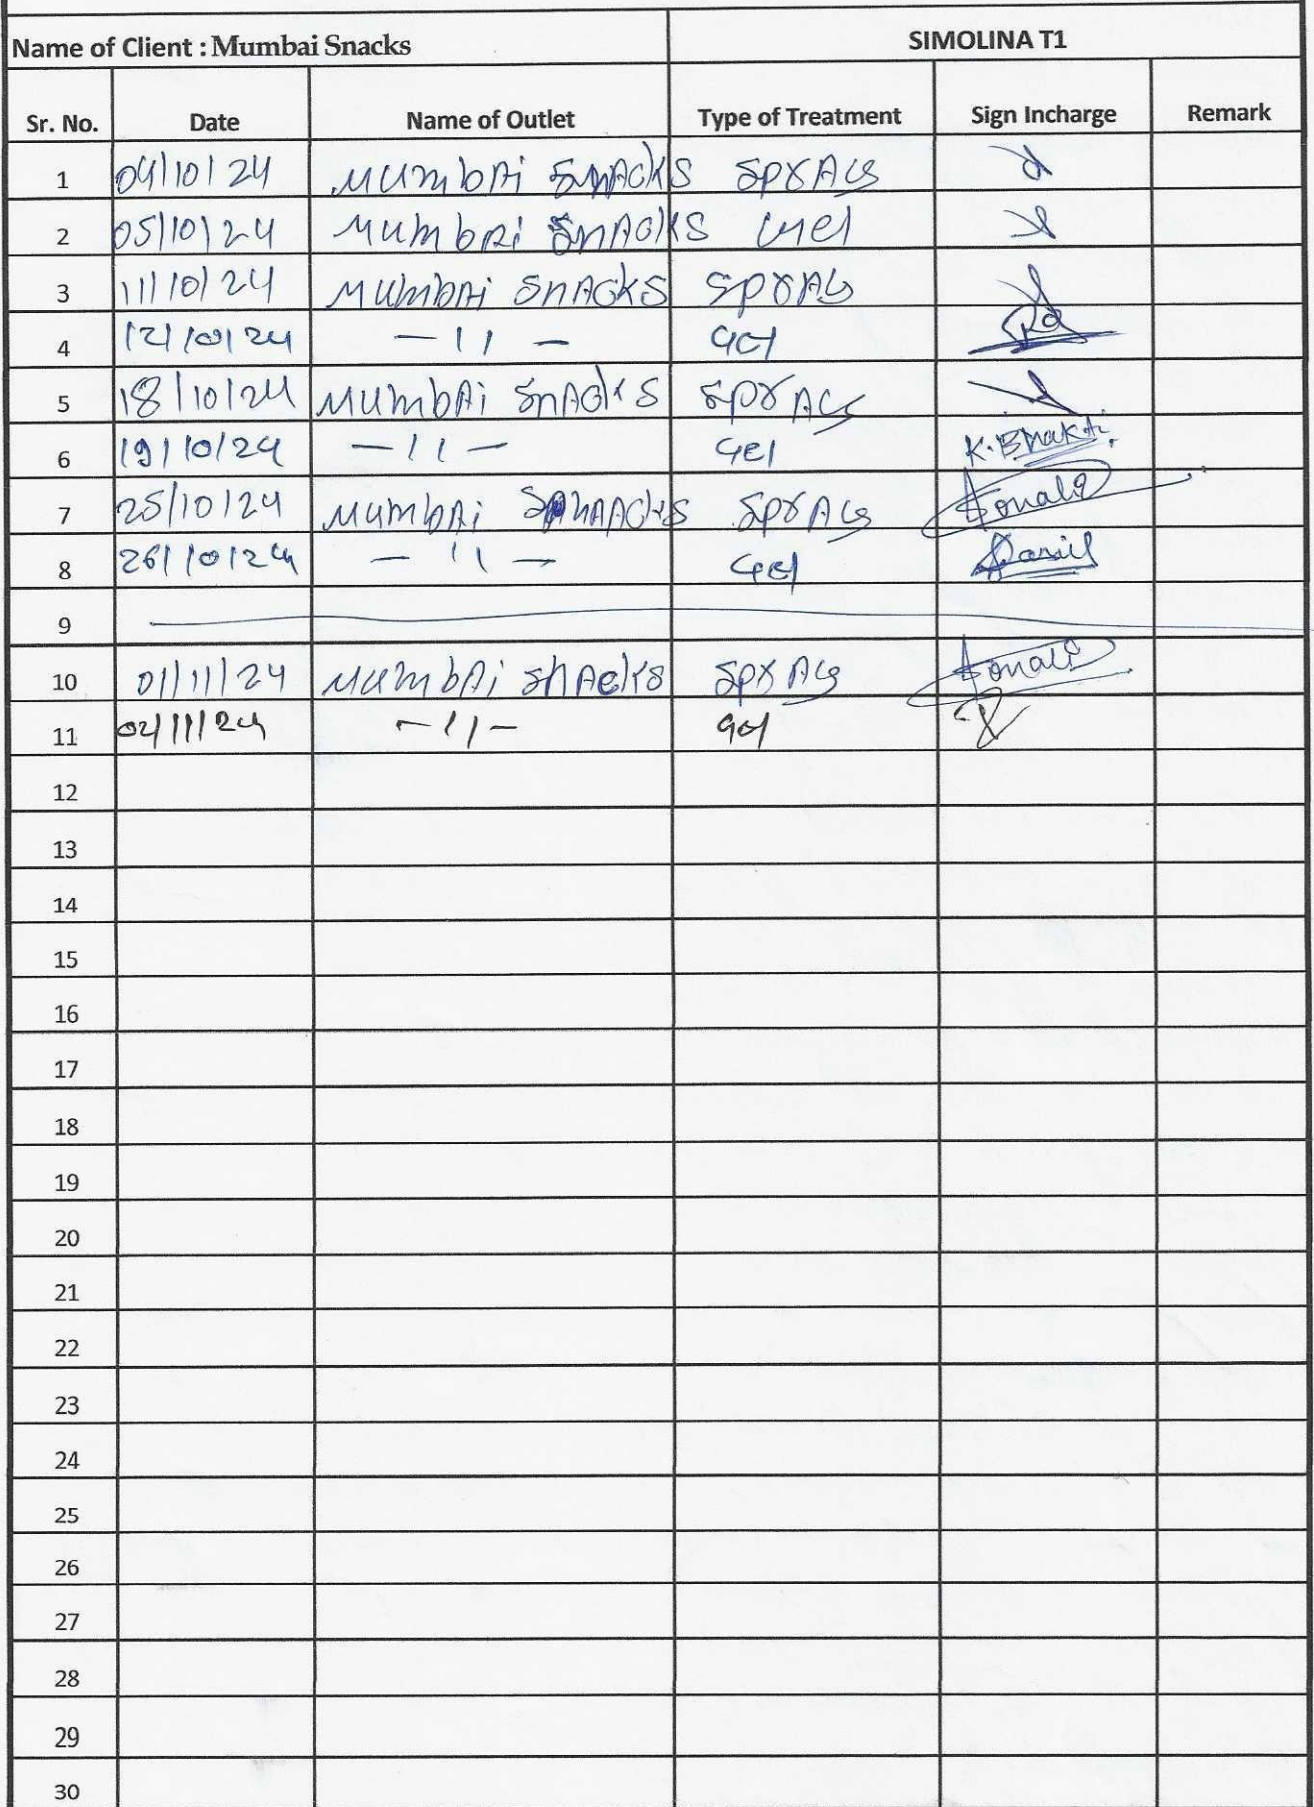 Name of Client : Mumbai Snacks SIMOLINA T1
Sr. No. Date Name of Outlet Type of Treatment Sign Incharge Remark
1 04/10/24 Mumbai Snacks Spray
2 05/10/24 Mumbai Snacks Gel
3 11/10/24 Mumbai Snacks Spray
4 12/10/24 — 11 — Gel
5 18/10/24 Mumbai Snacks Spray
6 19/10/24 — 11 — Gel K. Bhakti.
7 25/10/24 Mumbai Snaacks Spray Sonali
8 26/10/24 — 11 — Gel
9
10 01/11/24 Mumbai Snacks Spray Sonali
11 02/11/24 — 11 — Gel
12
13
14
15
16
17
18
19
20
21
22
23
24
25
26
27
28
29
30